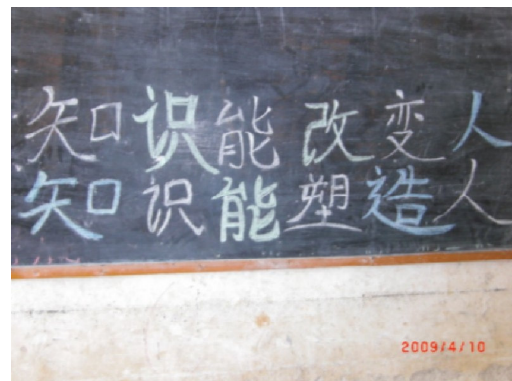 知识能改变人
知识能塑造人
2009/4/10